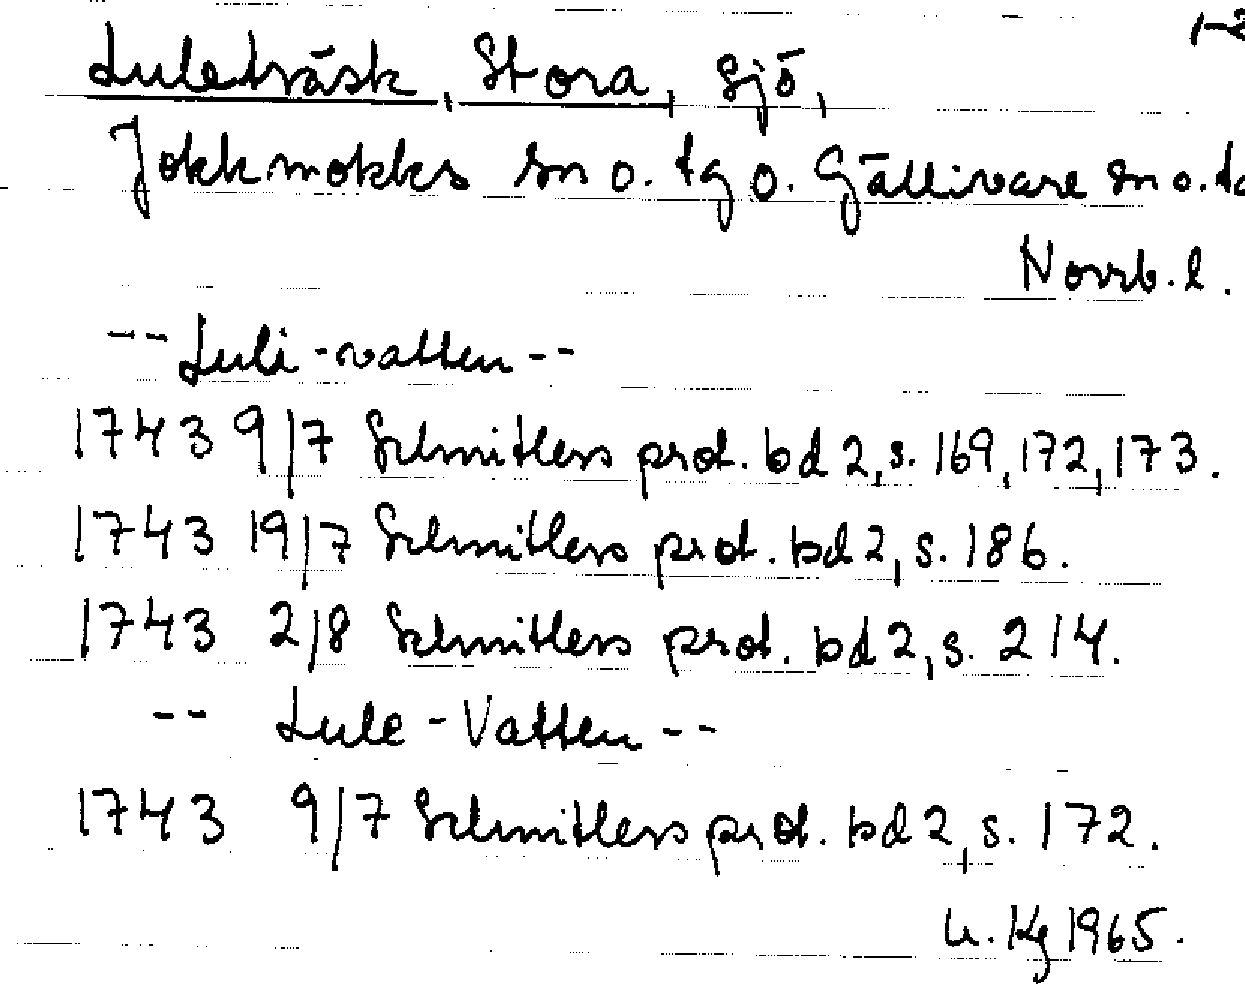 1-2
Luleträsk, Stora, sjö,
Jokkmokks sn o. tg o. Gällivare sn o. tg
Norrb. l.
-- Luli-vatten --
1743 9/7 Schnitlers prot. bd 2, s. 169, 172, 173.
1743 19/7 Schnitlers prot. bd 2, s. 186.
1743 2/8 Schnitlers prot. bd 2, s. 214.
-- Lule-Vatten --
1743 9/7 Schnitlers prot. bd 2, s. 172.
U. Kg 1965.